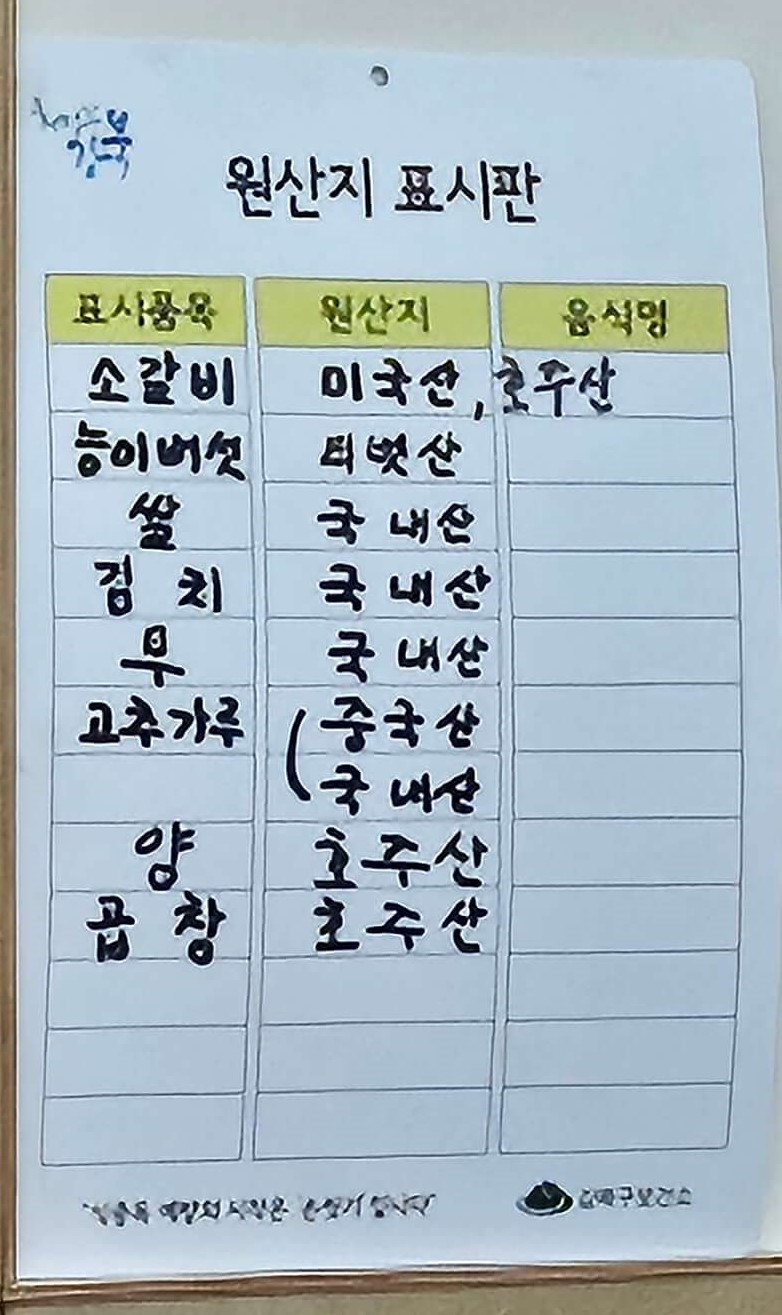 원산지 표시판
표시품목 원산지 음식명
소갈비 미국산, 호주산
능이버섯 티벳산
쌀 국내산
김치 국내산
무 국내산
고추가루 (중국산
국내산
양 호주산
곱창 호주산